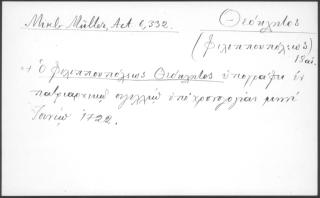 Mikl. Müller, Act. 6,332.
Θεόκλητος
(Φιλιππουπόλεως)
18 αἰ.
+ Ὁ Φιλιππουπόλεως Θεόκλητος ὑπογράφει ἐν
πατριαρχικῷ σιγιλλίῳ ὑπὸ χρονολογίαν μηνὶ
Ἰουνίῳ 1722.